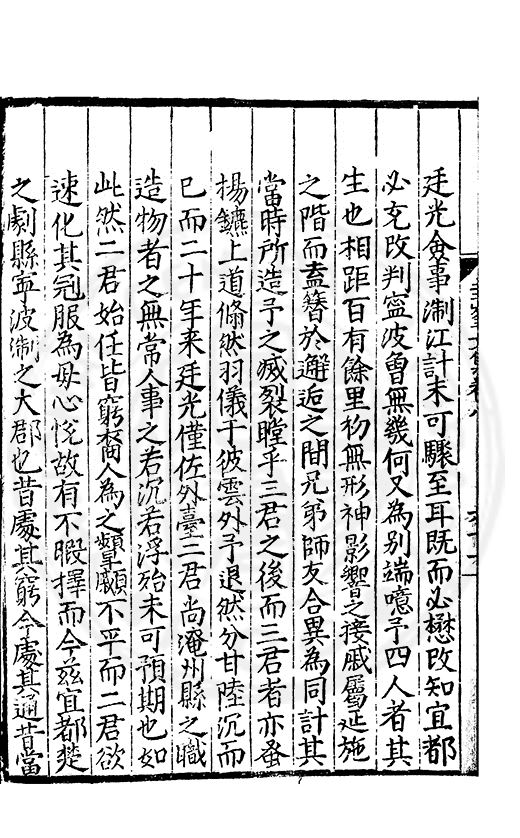 廷光僉事淛江計未可驟至耳既而必懋改知宜都
必充改判寧波曾無幾何又為别端噫予四人者其
生也相距百有餘里初無形神影響之接戚屬延施
之階而盍簪於邂逅之間兄弟師友合異為同計其
當時所造予之滅裂瞠乎三君之後而三君者亦蚤
揚鑣上道翛然羽儀于彼雲外予退然分甘陸沉而
已而二十年来廷光僅佐外臺二君尚淹州縣之職
造物者之無常人事之若沉若浮殆未可預期也如
此然二君始任皆窮裔人為之顰顣不平而二君欲
速化其冠服為毋心恱故有不暇擇而今兹宜都楚
之劇縣寧波淛之大郡也昔處其窮今處其通昔當